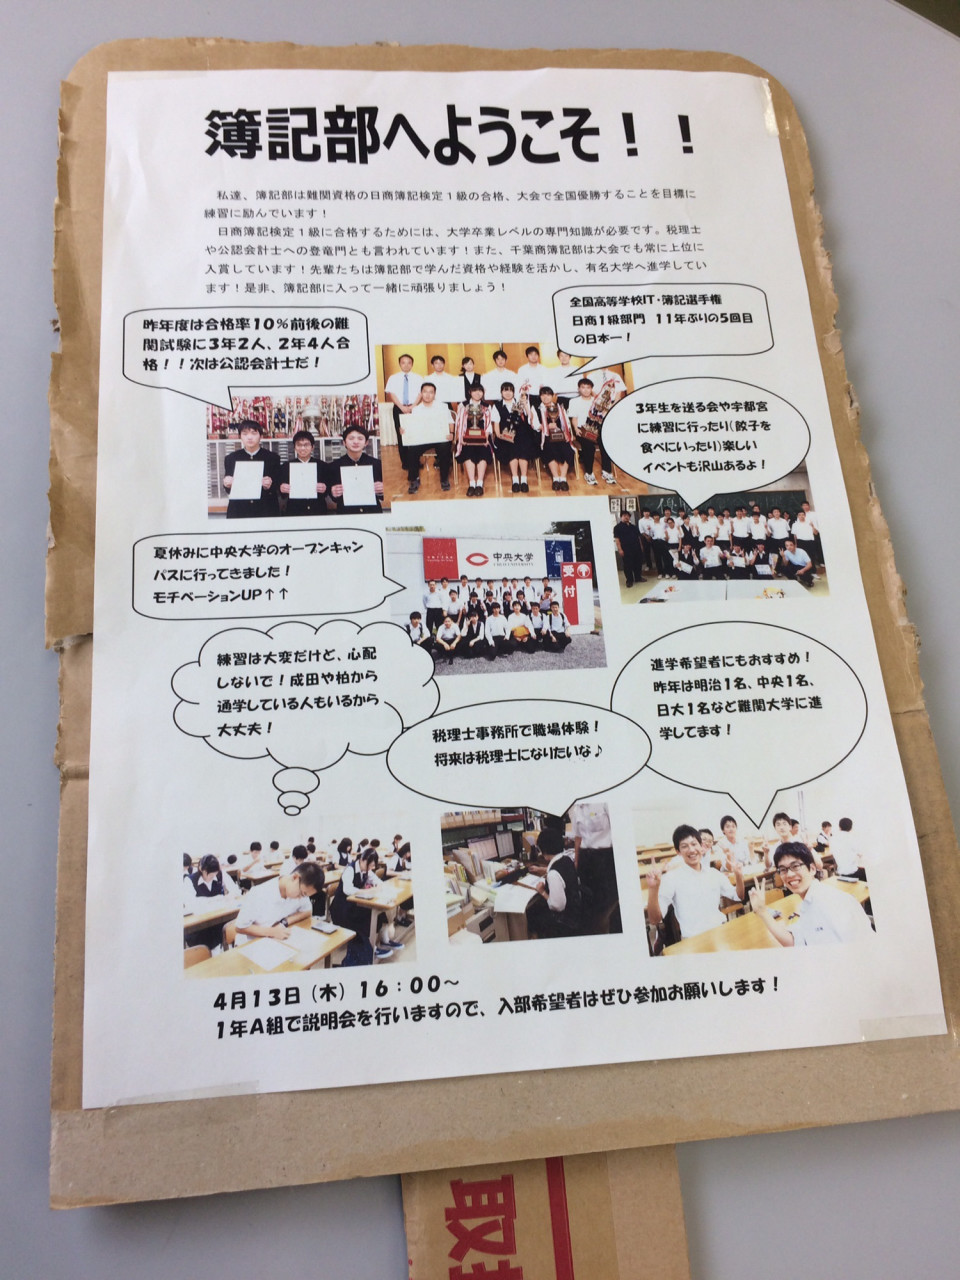 簿記部へようこそ！！
私達、簿記部は難関資格の日商簿記検定１級の合格、大会で全国優勝することを目標に
練習に励んでいます！
日商簿記検定１級に合格するためには、大学卒業レベルの専門知識が必要です。税理士
や公認会計士への登竜門とも言われています！また、千葉商簿記部は大会でも常に上位に
入賞しています！先輩たちは簿記部で学んだ資格や経験を活かし、有名大学へ進学してい
ます！是非、簿記部に入って一緒に頑張りましょう！
昨年度は合格率１０％前後の難
関試験に３年２人、２年４人合
格！！次は公認会計士だ！
全国高等学校IT・簿記選手権
日商１級部門　１１年ぶりの５回目
の日本一！
３年生を送る会や宇都宮
に練習に行ったり（餃子を
食べにいったり）楽しい
イベントも沢山あるよ！
夏休みに中央大学のオープンキャン
パスに行ってきました！
モチベーションUP↑↑
中央大学
CHUO UNIVERSITY
受付
練習は大変だけど、心配
しないで！成田や柏から
通学している人もいるから
大丈夫！
税理士事務所で職場体験！
将来は税理士になりたいな♪
進学希望者にもおすすめ！
昨年は明治１名、中央１名、
日大１名など難関大学に進
学してます！
４月１３日（木）１６：００～
１年A組で説明会を行いますので、入部希望者はぜひ参加お願いします！
取扱